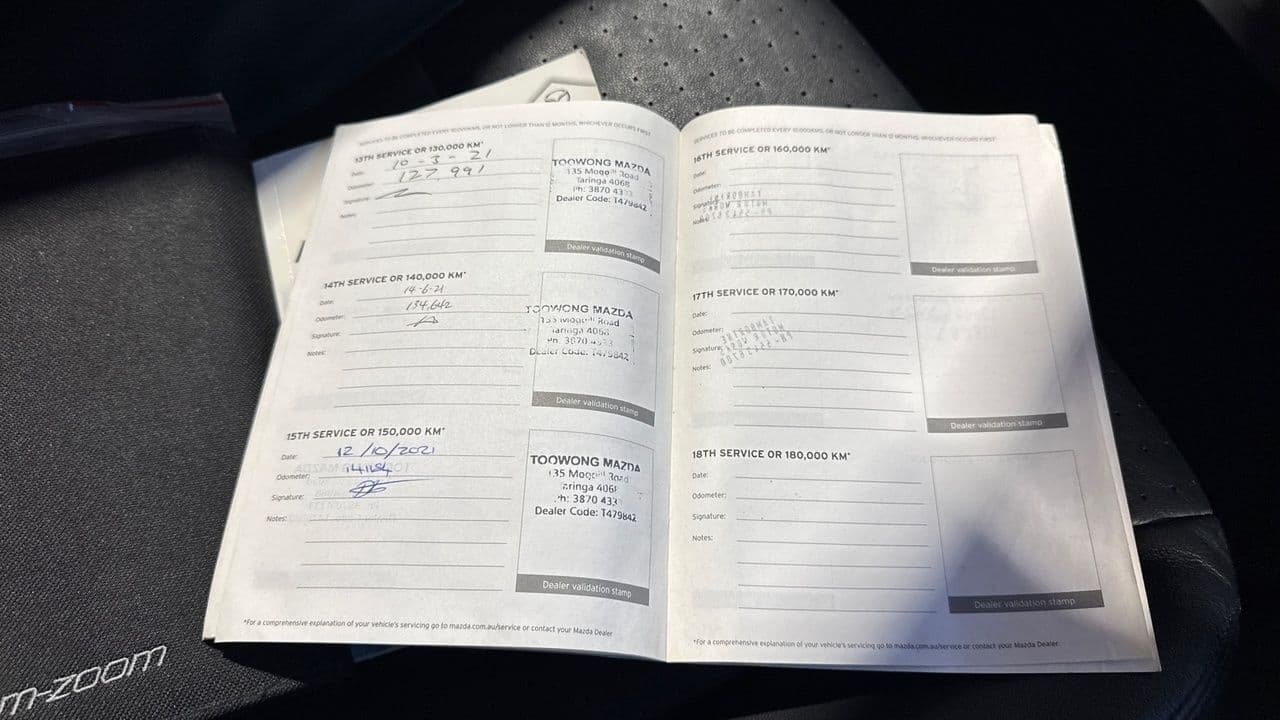 SERVICES TO BE COMPLETED EVERY 10,000KMS, OR NOT LONGER THAN 12 MONTHS, WHICHEVER OCCURS FIRST
13TH SERVICE OR 130,000 KM*
Date: 10-3-21
Odometer: 127,991
Signature:
Notes:
TOOWONG MAZDA
135 Moggill Road
Taringa 4068
Ph: 3870 4333
Dealer Code: T479842
Dealer validation stamp
14TH SERVICE OR 140,000 KM*
Date: 14-6-21
Odometer: 134,642
Signature:
Notes:
TOOWONG MAZDA
135 Moggill Road
Taringa 4068
Ph: 3870 4333
Dealer Code: T479842
Dealer validation stamp
15TH SERVICE OR 150,000 KM*
Date: 12/10/2021
Odometer:
Signature:
Notes:
TOOWONG MAZDA
135 Moggill Road
Taringa 4068
Ph: 3870 433
Dealer Code: T479842
Dealer validation stamp
*For a comprehensive explanation of your vehicle's servicing go to mazda.com.au/service or contact your Mazda Dealer
SERVICES TO BE COMPLETED EVERY 10,000KMS, OR NOT LONGER THAN 12 MONTHS, WHICHEVER OCCURS FIRST
16TH SERVICE OR 160,000 KM*
Date:
Odometer:
Signature:
Notes:
Dealer validation stamp
17TH SERVICE OR 170,000 KM*
Date:
Odometer:
Signature:
Notes:
Dealer validation stamp
18TH SERVICE OR 180,000 KM*
Date:
Odometer:
Signature:
Notes:
Dealer validation stamp
*For a comprehensive explanation of your vehicle's servicing go to mazda.com.au/service or contact your Mazda Dealer
m-zoom